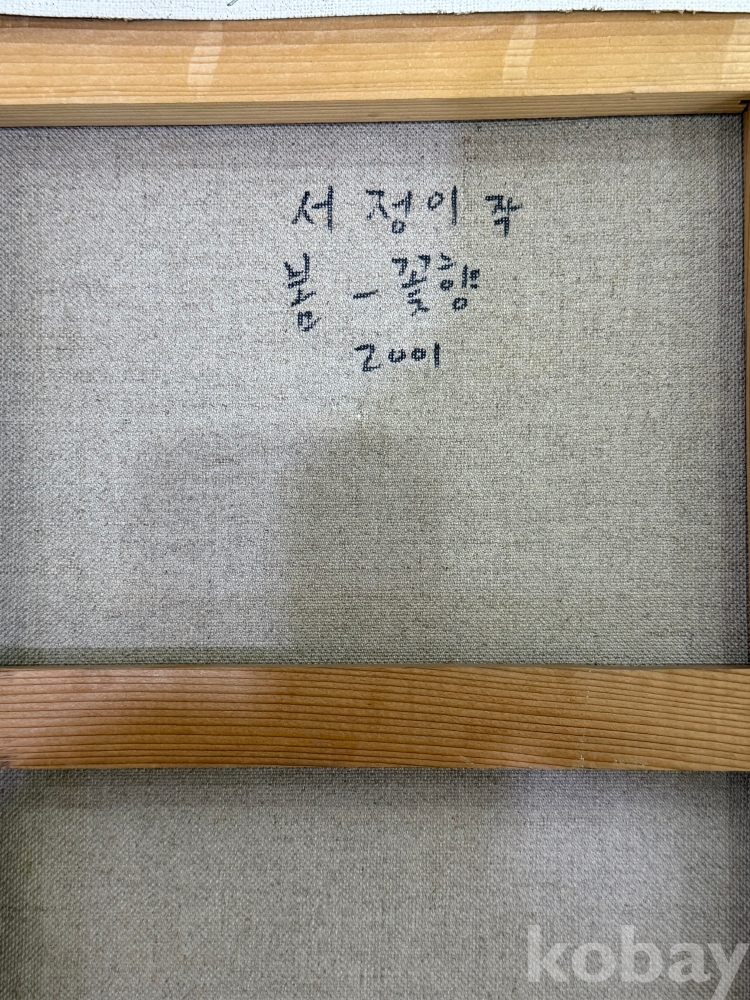 서 정이 작
봄 - 꽃향
2001
kobay